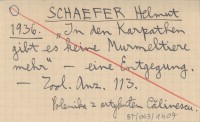 SCHAEFER Helmut
1936. „In den Karpathen
gibt es keine Murmeltiere
mehr" – eine Entgegung.
– Zool. Anz. 113.
Polemika z artykułem Călinescu.